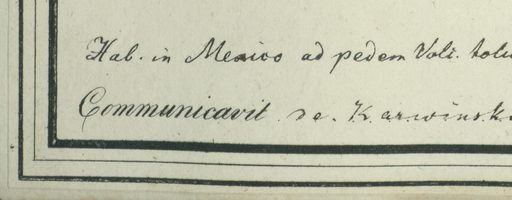 Hab. in Mexico ad pedem Volc. tolu
Communicavit de Karwinsk